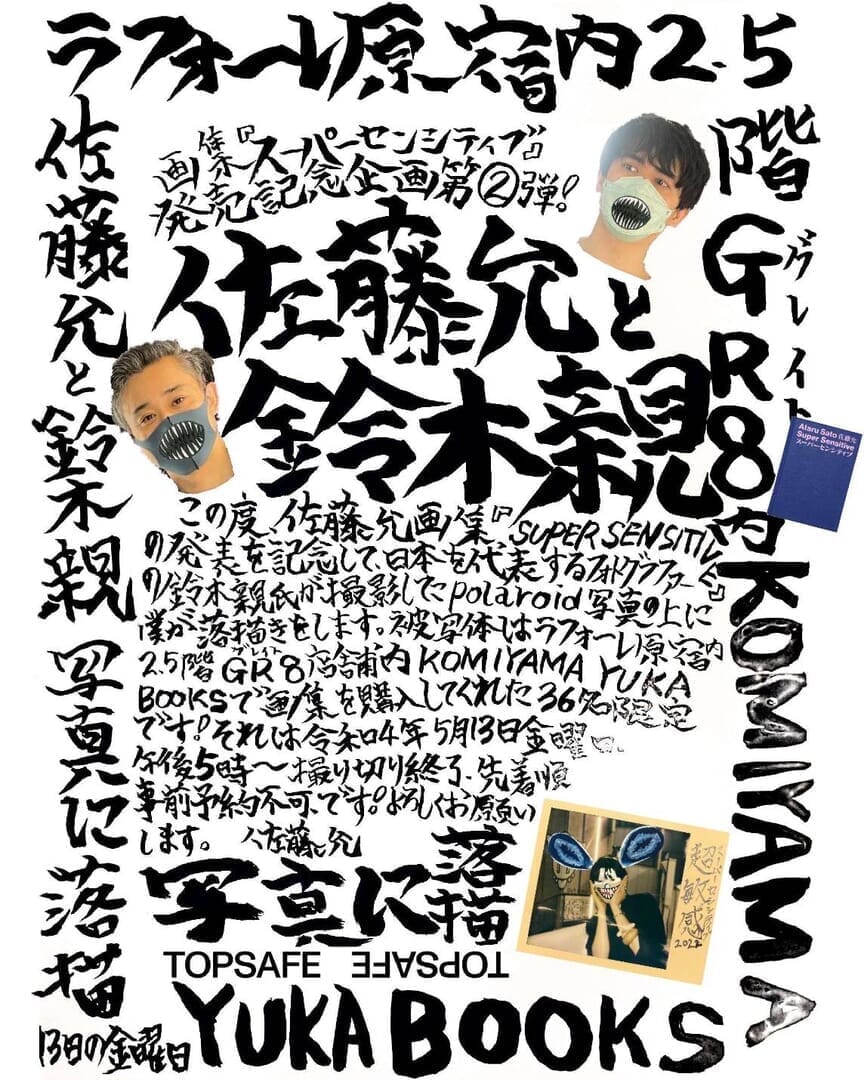 ラフォーレ原宿内2.5
階GR8内KOMIYAMA
グレイト
YUKA BOOKS
佐藤允と鈴木親 写真に落描
13日の金曜日
画集『スーパーセンシティブ』
発売記念企画第②弾!
佐藤允と
鈴木親
この度、佐藤允画集『SUPER SENSITIVE』
の発表を記念して、日本を代表するフォトグラファー
の鈴木親氏が撮影したpolaroid写真の上に
僕が落描きをします。被写体はラフォーレ原宿内
2.5階GR8店舗内KOMIYAMA YUKA
グレイト
BOOKSで画集を購入してくれた36名限定
です!それは令和4年5月13日金曜日、
午後5時〜撮り切り終了、先着順
事前予約不可、です。よろしくお願い
します。 佐藤允
写真に落描
TOPSAFE TOPSAFE
Ataru Sato 佐藤允
Super Sensitive
スーパーセンシティブ
スーパーセンシティブ
超敏感
2022